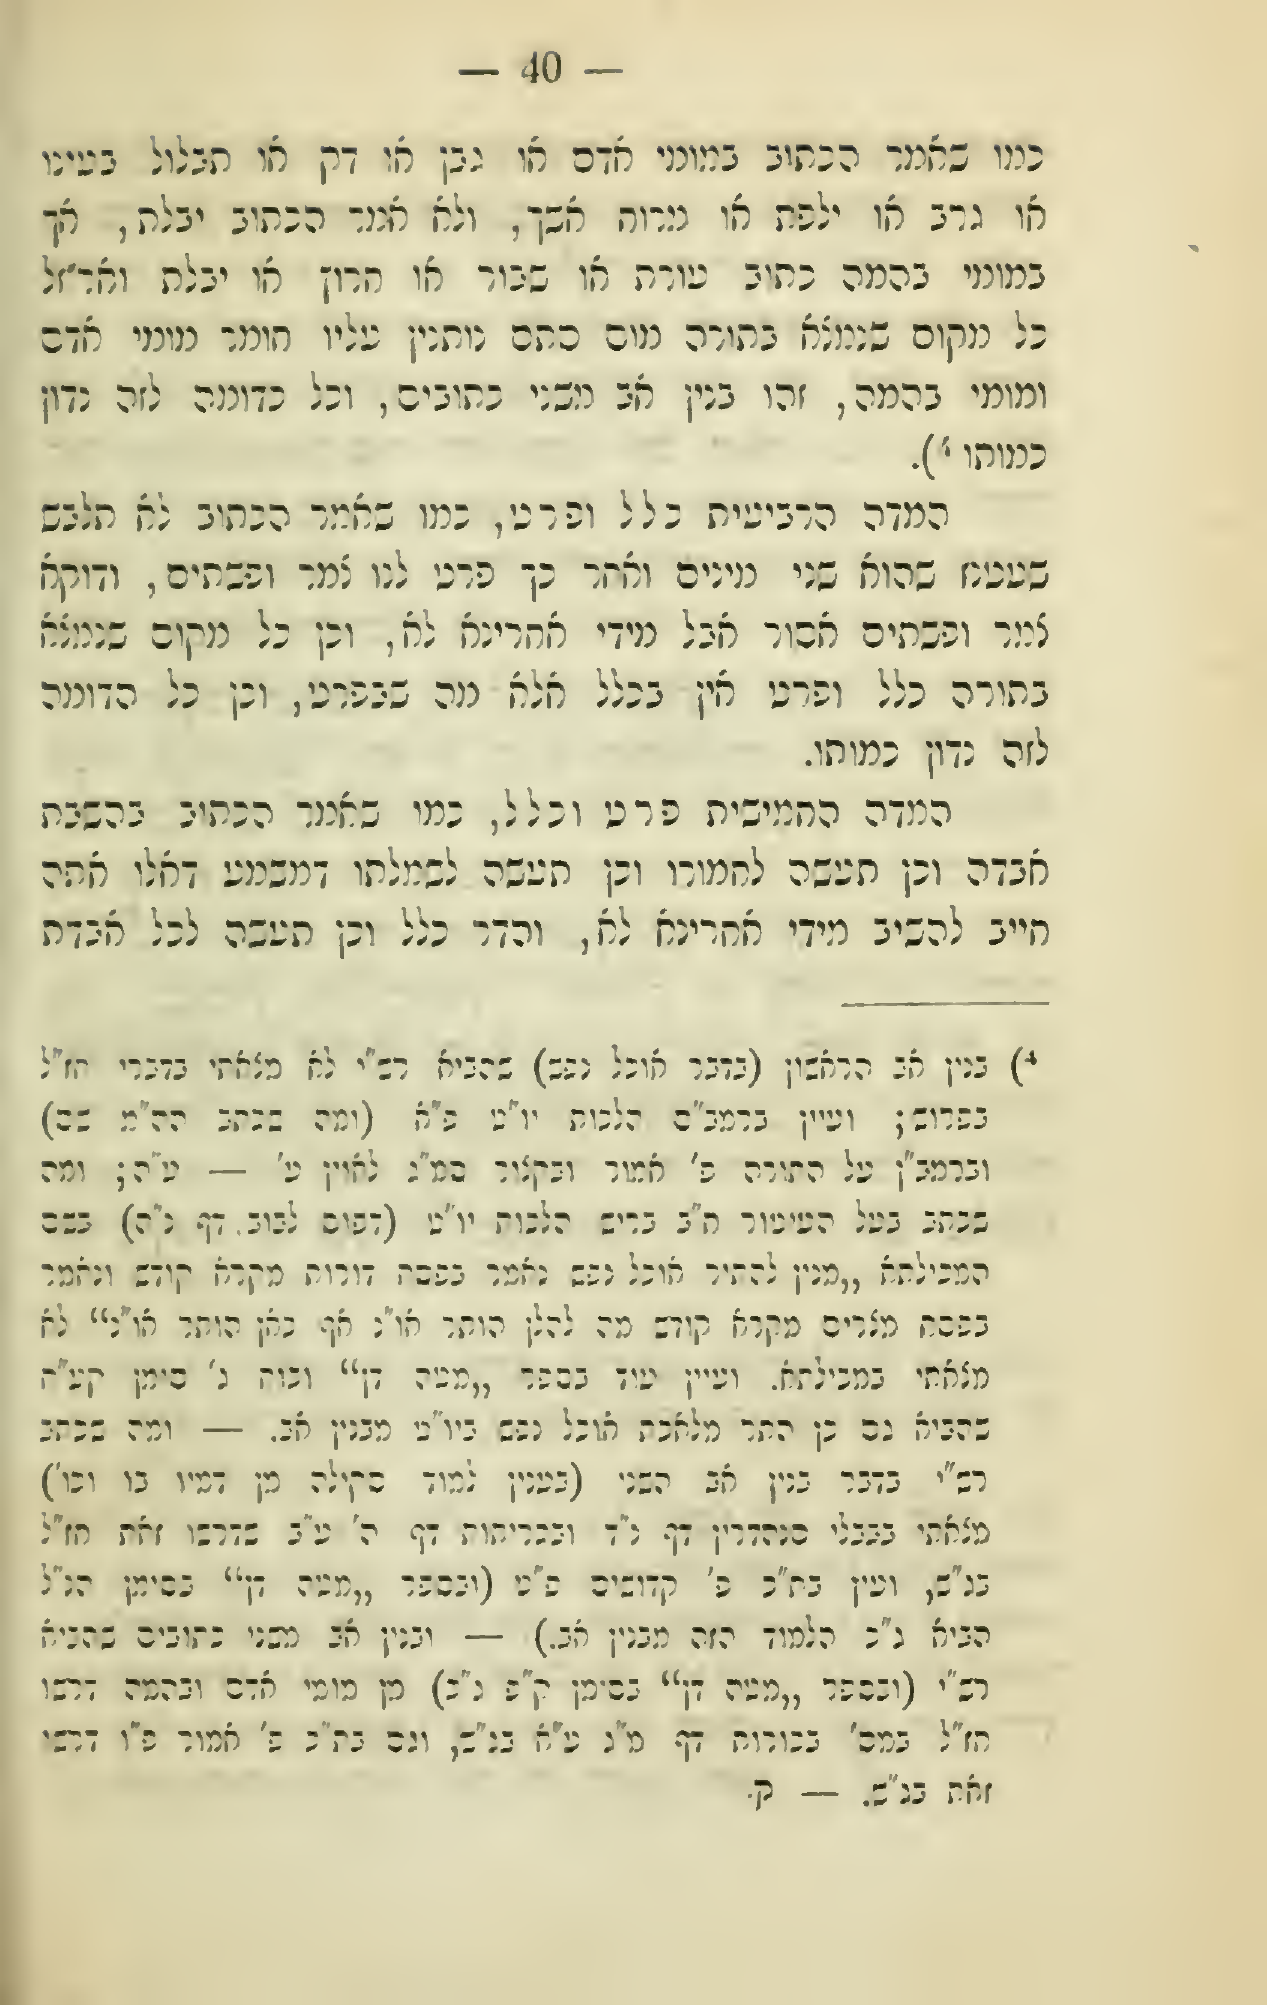 — 40 —
כמו שאמר הכתוב במומי אדם או גבן או דק או תבלול בעינו
או גרב או ילפת או מרוח אשך, ולא אמר הכתוב יבלת, אך
במומי בהמה כתוב עורת או שבור או חרוץ או יבלת ואר״זל
כל מקום שנמצא בתורה מום סתם נותנין עליו חומר מומי אדם
ומומי בהמה, זהו בנין אב משני כתובים, וכל כדומה לזה נדון
כמותו ⁴).
המדה הרביעית כלל ופרט, כמו שאמר הכתוב לא תלבש
שעטנז שהוא שני מינים ואחר כך פרט לנו צמר ופשתים, ודוקא
צמר ופשתים אסור אבל מידי אחרינא לא, וכן כל מקום שנמצא
בתורה כלל ופרט אין בכלל אלא מה שבפרט, וכן כל הדומה
לזה נדון כמותו.
המדה החמישית פרט וכלל, כמו שאמר הכתוב בהשבת
אבדה וכן תעשה לחמורו וכן תעשה לשמלתו דמשמע דאלו אתה
חייב להשיב מידי אחרינא לא, והדר כלל וכן תעשה לכל אבדת
⁴) בנין אב הראשון (בדבר אוכל נפש) שהביא רש״י לא מצאתי בדברי חז״ל
בפרוש; ועיין ברמב״ם הלכות יו״ט פ״א (ומה שכתב הה״מ שם)
וברמב״ן על התורה פ׳ אמור ובקצור סמ״ג לאוין ע׳ — ע״ה; ומה
שכתב בעל העיטור ח״ב בריש הלכות יו״ט (דפוס לבוב, דף נ״ה) בשם
המכילתא „מנין להתיר אוכל נפש נאמר בפסח דורות מקרא קודש ונאמר
בפסח מצרים מקרא קודש מה להלן הותר או״נ אף כאן הותר או״נ“ לא
מצאתי במכילתא. ועיין עוד בספר „מטה דן“ וכוח ג׳ סימן קע״ח
שהביא גם כן התר מלאכת אוכל נפש ביו״ט מבנין אב. — ומה שכתב
רש״י בדבר בנין אב השני (בענין למוד סקילה מן דמיו בו וכו׳)
מצאתי בבבלי סנהדרין דף נ״ד ובכריתות דף ה׳ ע״ב שדרשו זאת חז״ל
בג״ש, ועין בת״כ פ׳ קדושים פ״ט (ובספר „מטה דן“ בסימן הנ״ל
הביא ג״כ הלמוד הזה מבנין אב.) — ובנין אב משני כתובים שהביא
רש״י (ובספר „מטה דן“ בסימן ק״פ ג״כ) מן מומי אדם ובהמה דרשו
חז״ל במס׳ בכורות דף מ״ג ע״א בג״ש, וגם בת״כ פ׳ אמור פ״ו דרשו
זאת בג״ש. — ק.